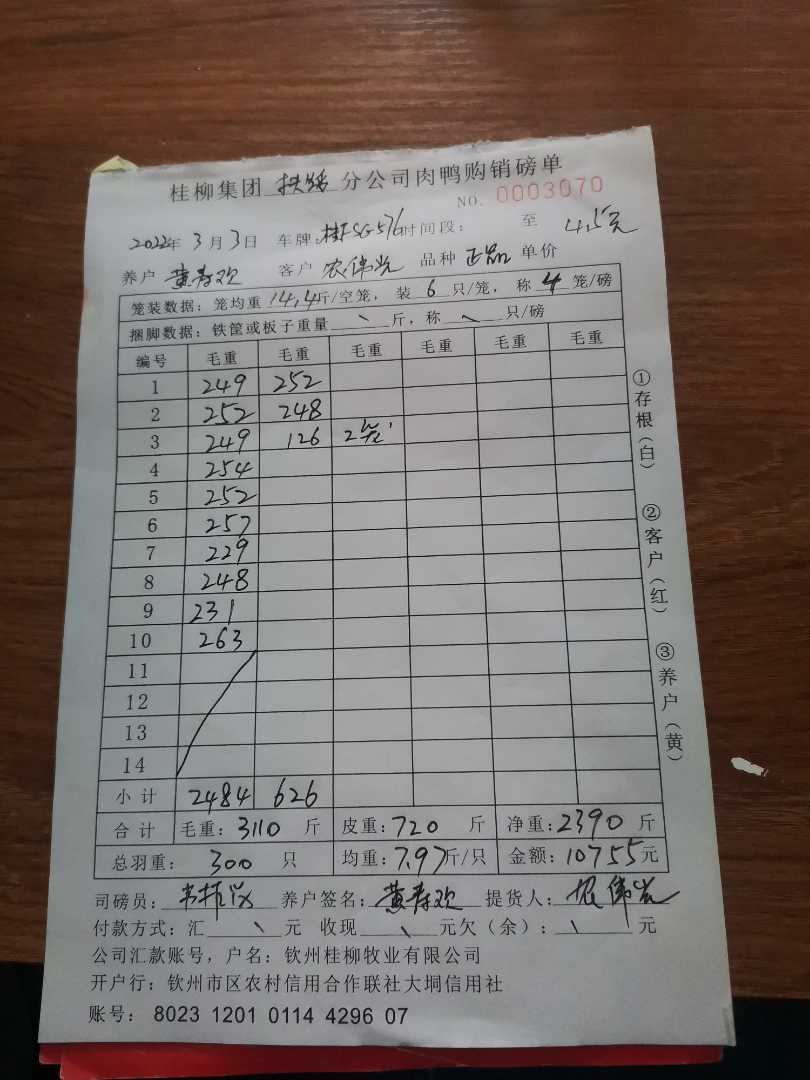 桂柳集团 分公司肉鸭购销磅单
NO. 0003070
2022年 3月3日 车牌: 时间段: 至
养户 黄春欢 客户 农伟光 品种 正品 单价 4.5元
笼装数据: 笼均重 14.4斤/空笼, 装 6 只/笼, 称 4 笼/磅
捆脚数据: 铁筐或板子重量 \ 斤, 称 \ 只/磅
编号 毛重 毛重 毛重 毛重 毛重 毛重
1 249 252
2 252 248
3 249 126 2笼
4 254
5 252
6 257
7 229
8 248
9 231
10 263
11
12
13
14
小计 2484 626
合计 毛重: 3110 斤 皮重: 720 斤 净重: 2390 斤
总羽重: 300 只 均重: 7.97斤/只 金额: 10755元
司磅员: 养户签名: 黄春欢 提货人: 伟光
付款方式: 汇 \ 元 收现 \ 元欠(余): \ 元
公司汇款账号, 户名: 钦州桂柳牧业有限公司
开户行: 钦州市区农村信用合作联社大垌信用社
账号: 8023 1201 0114 4296 07
①存根(白) ②客户(红) ③养户(黄)